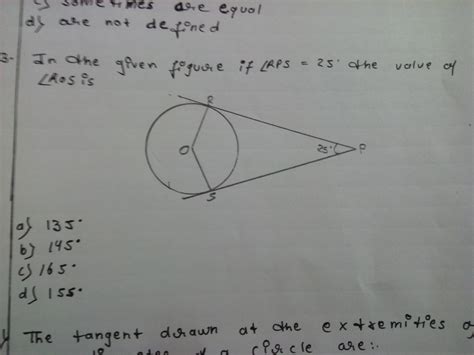 c) some times are equal
d) are not defined
3. In the given figure if ∠RPS = 25° the value of
∠ROS is
R
O
25°
P
S
a) 135°
b) 145°
c) 165°
d) 155°
The tangent drawn at the extremities
of a circle are:-